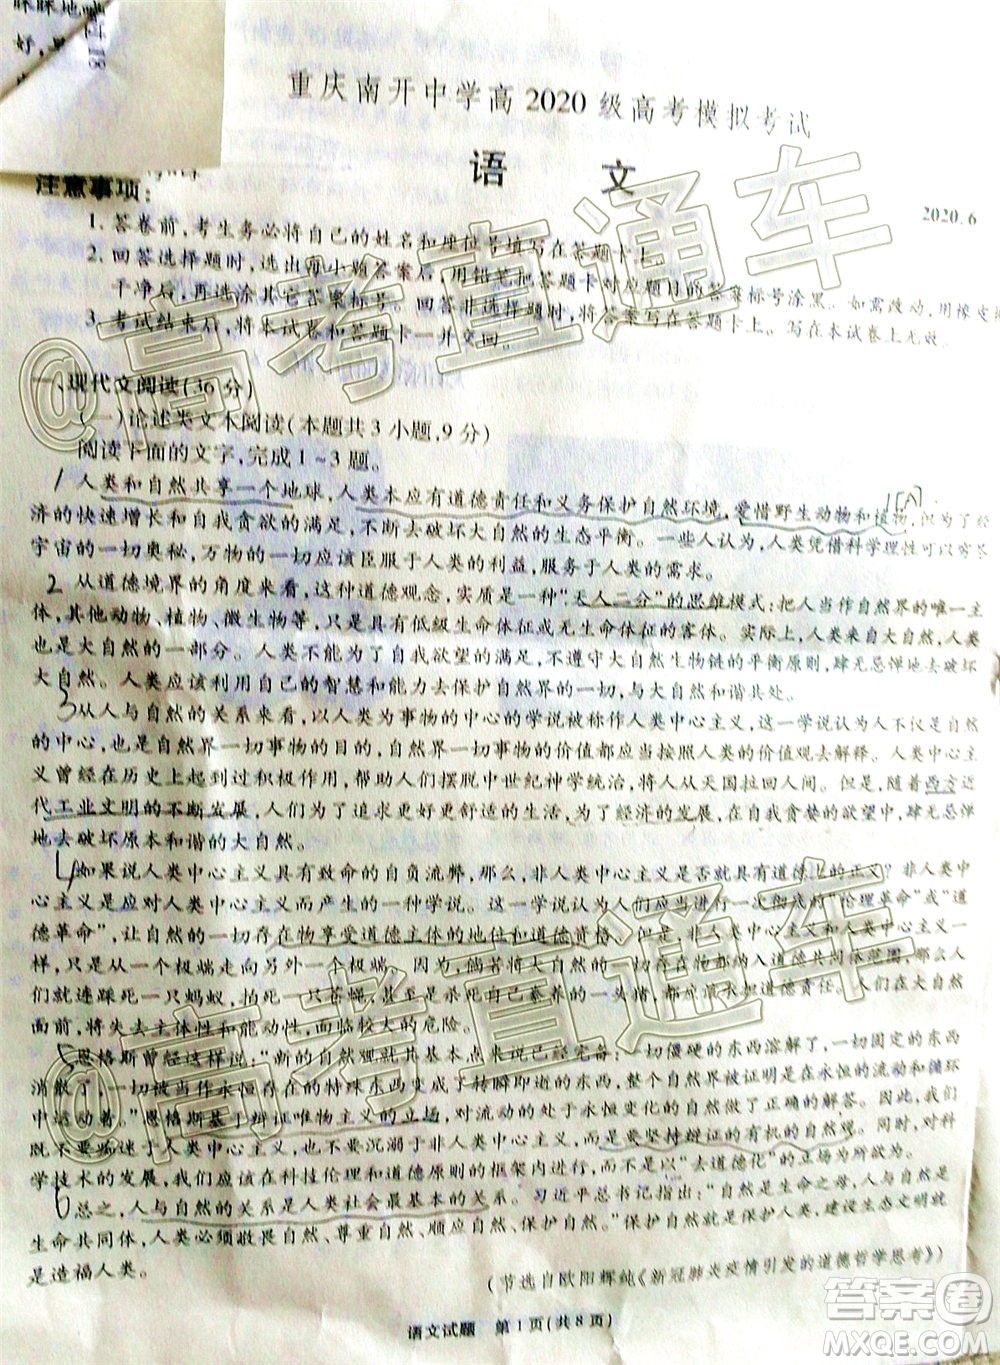 睬睬地
过18
好，
重庆南开中学高2020级高考模拟考试
语 文
2020.6
注意事项：
1.答卷前，考生务必将自己的姓名和座位号填写在答题卡上。
2.回答选择题时，选出每小题答案后，用铅笔把答题卡对应题目的答案标号涂黑。如需改动，用橡皮擦
干净后，再选涂其它答案标号。回答非选择题时，将答案写在答题卡上。写在本试卷上无效。
3.考试结束后，将本试卷和答题卡一并交回。
一、现代文阅读（36分）
（一）论述类文本阅读（本题共3小题，9分）
阅读下面的文字，完成1～3题。
1 人类和自然共享一个地球，人类本应有道德责任和义务保护自然环境，爱惜野生动物和植物，但为了经
济的快速增长和自我贪欲的满足，不断去破坏大自然的生态平衡。一些人认为，人类凭借科学理性可以穷尽
宇宙的一切奥秘，万物的一切应该臣服于人类的利益，服务于人类的需求。
2 从道德境界的角度来看，这种道德观念，实质是一种“天人二分”的思维模式：把人当作自然界的唯一主
体，其他动物、植物、微生物等，只是具有低级生命体征或无生命体征的客体。实际上，人类来自大自然，人类
也是大自然的一部分。人类不能为了自我欲望的满足，不遵守大自然生物链的平衡原则，肆无忌弹地去破坏
大自然。人类应该利用自己的智慧和能力去保护自然界的一切，与大自然和谐共处。
3 从人与自然的关系来看，以人类为事物的中心的学说被称作人类中心主义，这一学说认为人不仅是自然
的中心，也是自然界一切事物的目的，自然界一切事物的价值都应当按照人类的价值观去解释。人类中心主
义曾经在历史上起到过积极作用，帮助人们摆脱中世纪神学统治，将人从天国拉回人间。但是，随着西方近
代工业文明的不断发展，人们为了追求更好更舒适的生活，为了经济的发展，在人类贪婪的欲望下，肆无忌弹
地去破坏原本和谐的大自然。
4 如果说人类中心主义具有致命的自负流弊，那么，非人类中心主义是否就具有道德上的正义？非人类中
心主义是应对人类中心主义而产生的一种学说。非人类中心主义认为，人们应当进行一次彻底的“伦理革命”或“道
德革命”，自然界的一切存在物享受道德主体的地位和道德资格。但是，非人类中心主义和人类中心主义一
样，只是从一个极端走向另外一个极端。
们就连踩死一只蚂蚁，拍死一只苍蝇，甚至是杀死自己豢养的一头猪，都应该承担道德责任。人类在大自然
面前，将失去主体性和能动性，面临较大的危险。
5 恩格斯曾经这样说：“新的自然观就其基本点来说已经完备：一切僵硬的东西溶解了，一切固定的东西
消散了，一切被当作永恒存在的特殊东西变成了转瞬即逝的东西，整个自然界被证明是在永恒的流动和循环
中运动着。”恩格斯基于辩证唯物主义的立场，对流动的处于永恒变化的自然界做出了科学的解答。人类
既不要痴迷于人类中心主义，也不要沉溺于非人类中心主义，而是要坚持辩证的有机的自然观。同时，对科
学技术的发展，我们应该在科技伦理和道德原则的框架内进行，
6 总之，人与自然的关系是人类社会最基本的关系。习近平总书记指出：“自然是生命之母，人与自然是
生命共同体，人类必须敬畏自然、尊重自然、顺应自然、保护自然。”保护自然就是保护人类，建设生态文明就
是造福人类。
（节选自欧阳辉纯《新冠肺炎疫情引发的道德哲学思考》）
语文试题 第1页（共8页）
@高考直通车
@高考直通车
答案圈
MXQE.COM